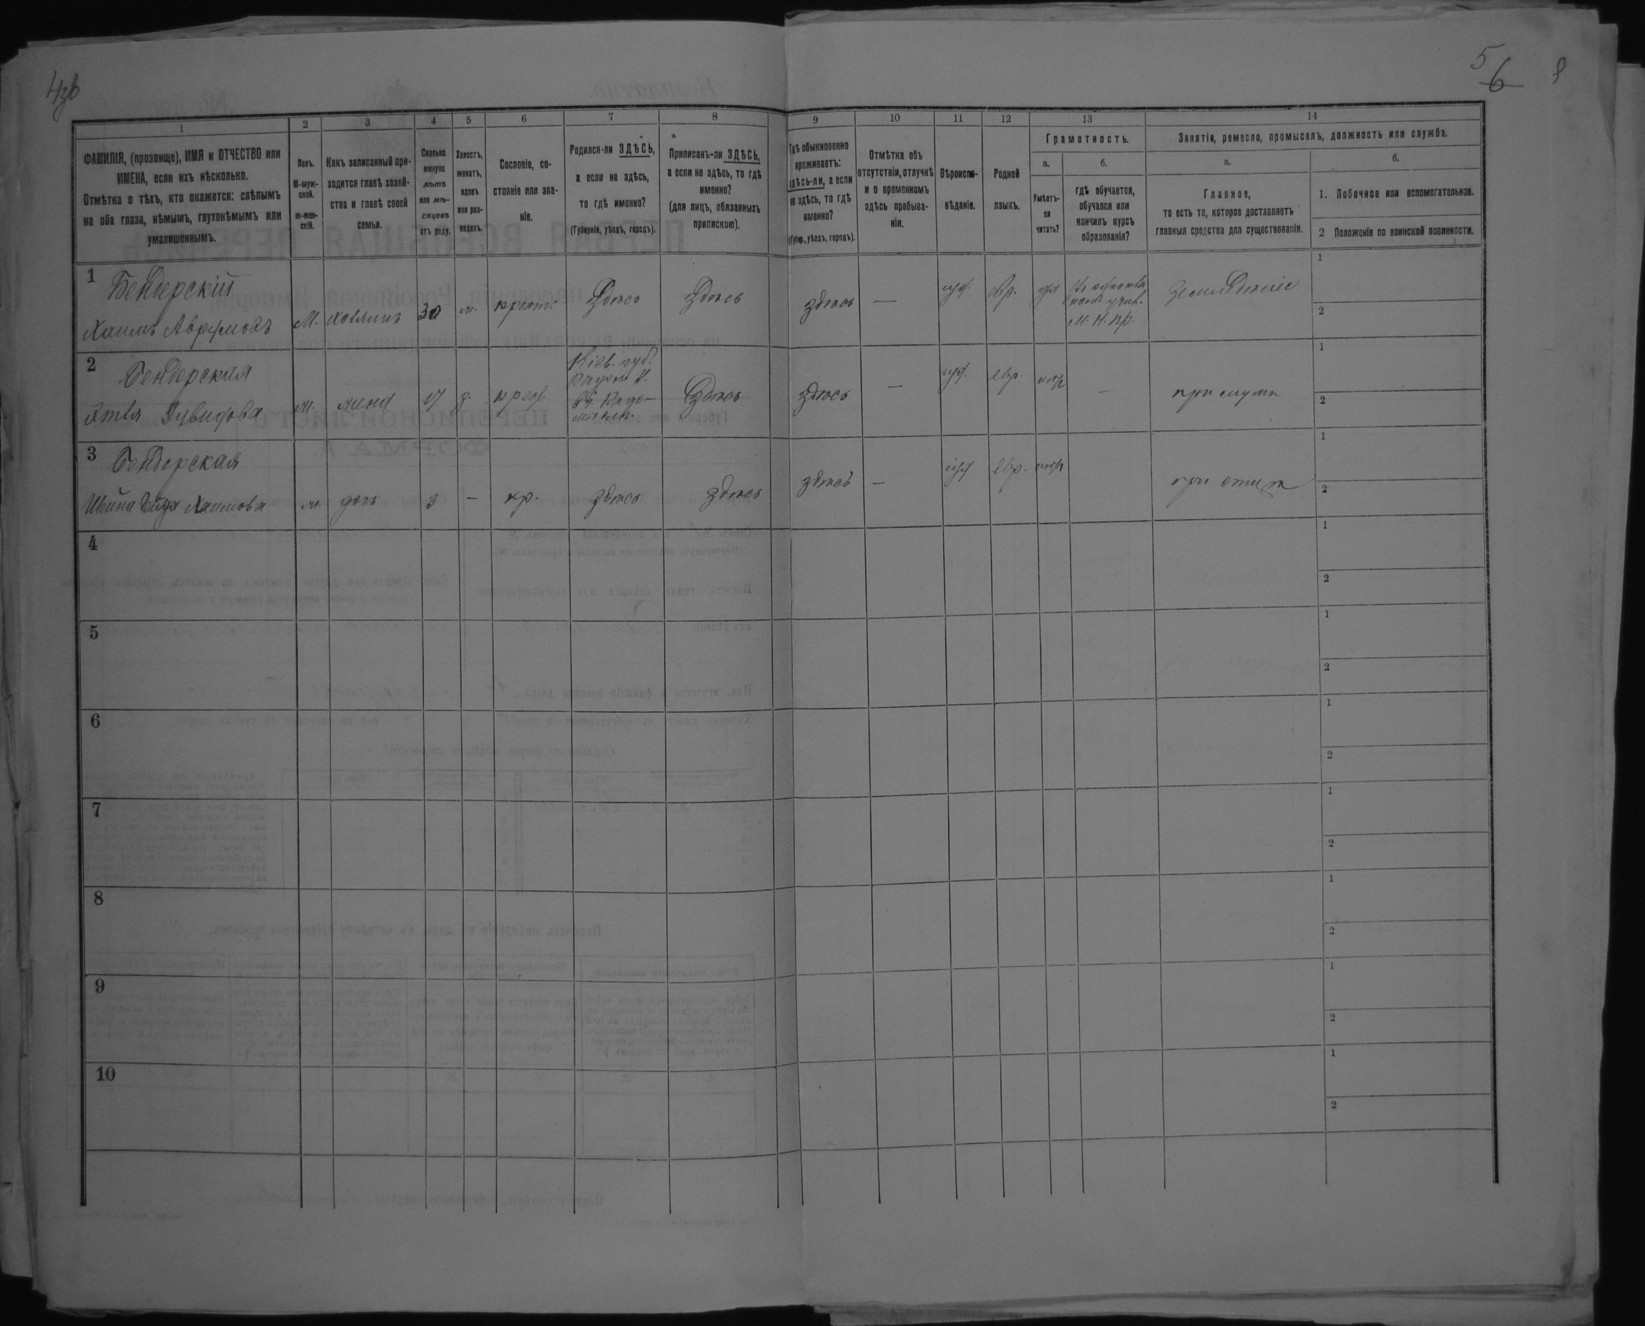 5
6
1
2
3
4
5
6
7
8
9
10
11
12
13
14
ФАМИЛІЯ, (прозвище), ИМЯ и ОТЧЕСТВО или
ИМЕНА, если ихъ нѣсколько.
Отмѣтка о тѣхъ, кто окажется: слѣпымъ
на оба глаза, нѣмымъ, глухонѣмымъ или
умалишеннымъ.
Полъ.
М-муж-
ской.
Ж-жен-
скій.
Какъ записанный при-
ходится главѣ хозяй-
ства и главѣ своей
семьи.
Сколько
минуло
лѣтъ
или мѣ-
сяцевъ
отъ роду.
Холостъ,
женатъ,
вдовъ
или раз-
веденъ.
Сословіе, со-
стояніе или зва-
ніе.
Родился-ли ЗДѢСЬ,
а если не здѣсь,
то гдѣ именно?
(Губернія, уѣздъ, городъ).
Приписанъ-ли ЗДѢСЬ,
а если не здѣсь, то гдѣ
именно?
(для лицъ, обязанныхъ
припискою).
Гдѣ обыкновенно
проживаетъ:
здѣсь-ли, а если
не здѣсь, то гдѣ
именно?
(Губер., уѣздъ, городъ).
Отмѣтка объ
отсутствіи, отлучкѣ
и о временномъ
здѣсь пребыва-
ніи.
Вѣроиспо-
вѣданіе.
Родной
языкъ.
Грамотность.
а.
Умѣетъ-
ли
читать?
б.
гдѣ обучается,
обучался или
кончилъ курсъ
образованія?
Занятіе, ремесло, промыселъ, должность или служба.
а.
Главное,
то есть то, которое доставляетъ
главныя средства для существованія.
б.
1. Побочное или вспомогательное.
2 Положеніе по воинской повинности.
1
Бендерскій
Хаимъ Аврумовъ
М. хозяинъ 30 ж. крест. Здѣсь Здѣсь здѣсь — іуд. евр. да
М. Н. пр.
Земледѣліе
1
2
2
Бендерская
Давидова
ж. жена з. крест.
Кіев. губ.
Здѣсь здѣсь — іуд. евр. нѣтъ — при мужѣ
1
2
3
Бендерская
Хаимова
ж. дочь 3 — кр. здѣсь здѣсь здѣсь — іуд. евр. нѣтъ при отцѣ
1
2
4
1
2
5
1
2
6
1
2
7
1
2
8
1
2
9
1
2
10
1
2